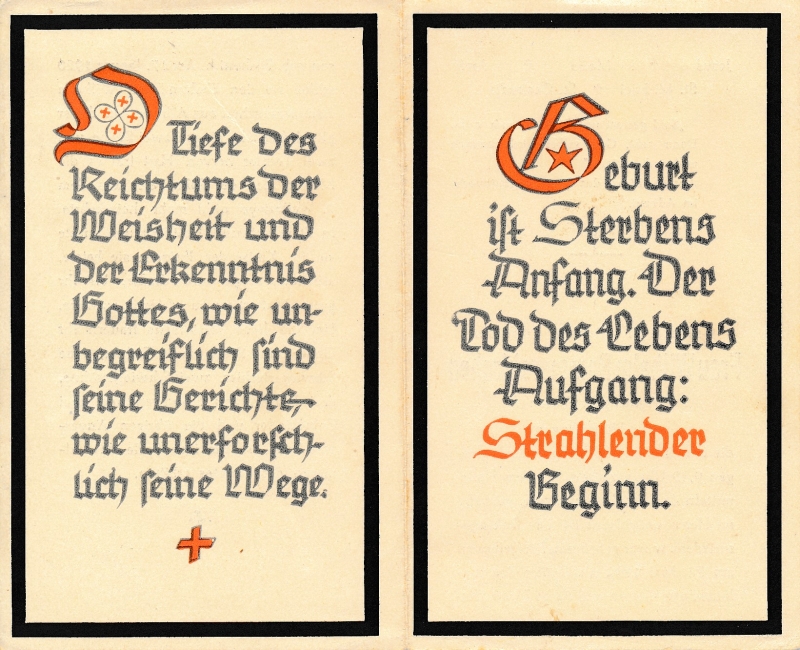 O Tiefe des
Reichtums der
Weisheit und
der Erkenntnis
Gottes, wie un-
begreiflich sind
seine Gerichte,
wie unerforsch-
lich seine Wege.
Geburt
ist Sterbens
Anfang. Der
Tod des Lebens
Aufgang:
Strahlender
Beginn.